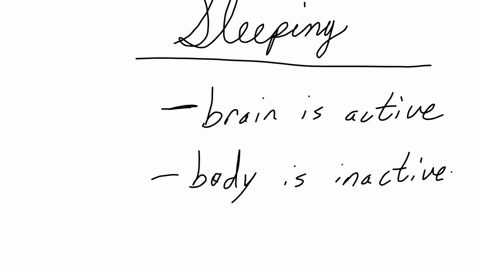 Sleeping
- brain is active
- body is inactive.